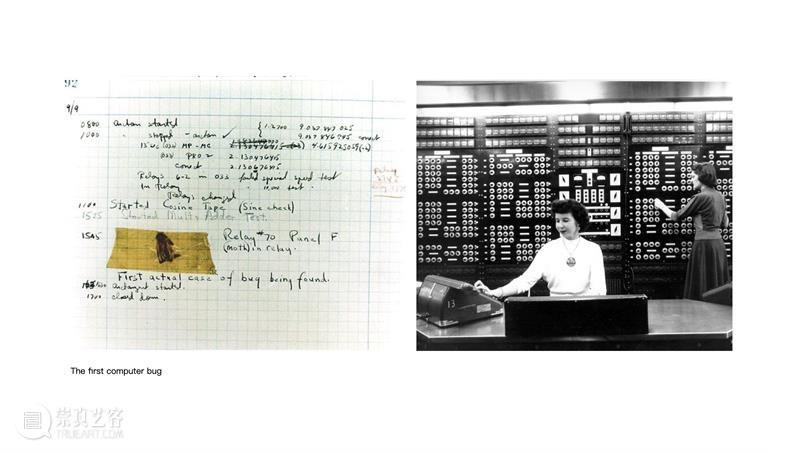 92
9/9
0800 Antan started
1000 " stopped - antan ✓ { 1.2700 9.037 847 025
9.037 846 995 correct
13"uc (032) MP-MC 4.615925059(-2)
(033) PRO 2 2.130476415
correct 2.130676415
Relays 6-2 in 033 failed special speed test
in Relay " 11.000 test.
Relays changed
1100 Started Cosine Tape (Sine check)
1525 Started Multi Adder Test.
1545 Relay #70 Panel F
(Moth) in relay.
First actual case of bug being found.
1630 antangent started.
1700 closed down.
13
The first computer bug
崇真艺客
TRUEART.COM